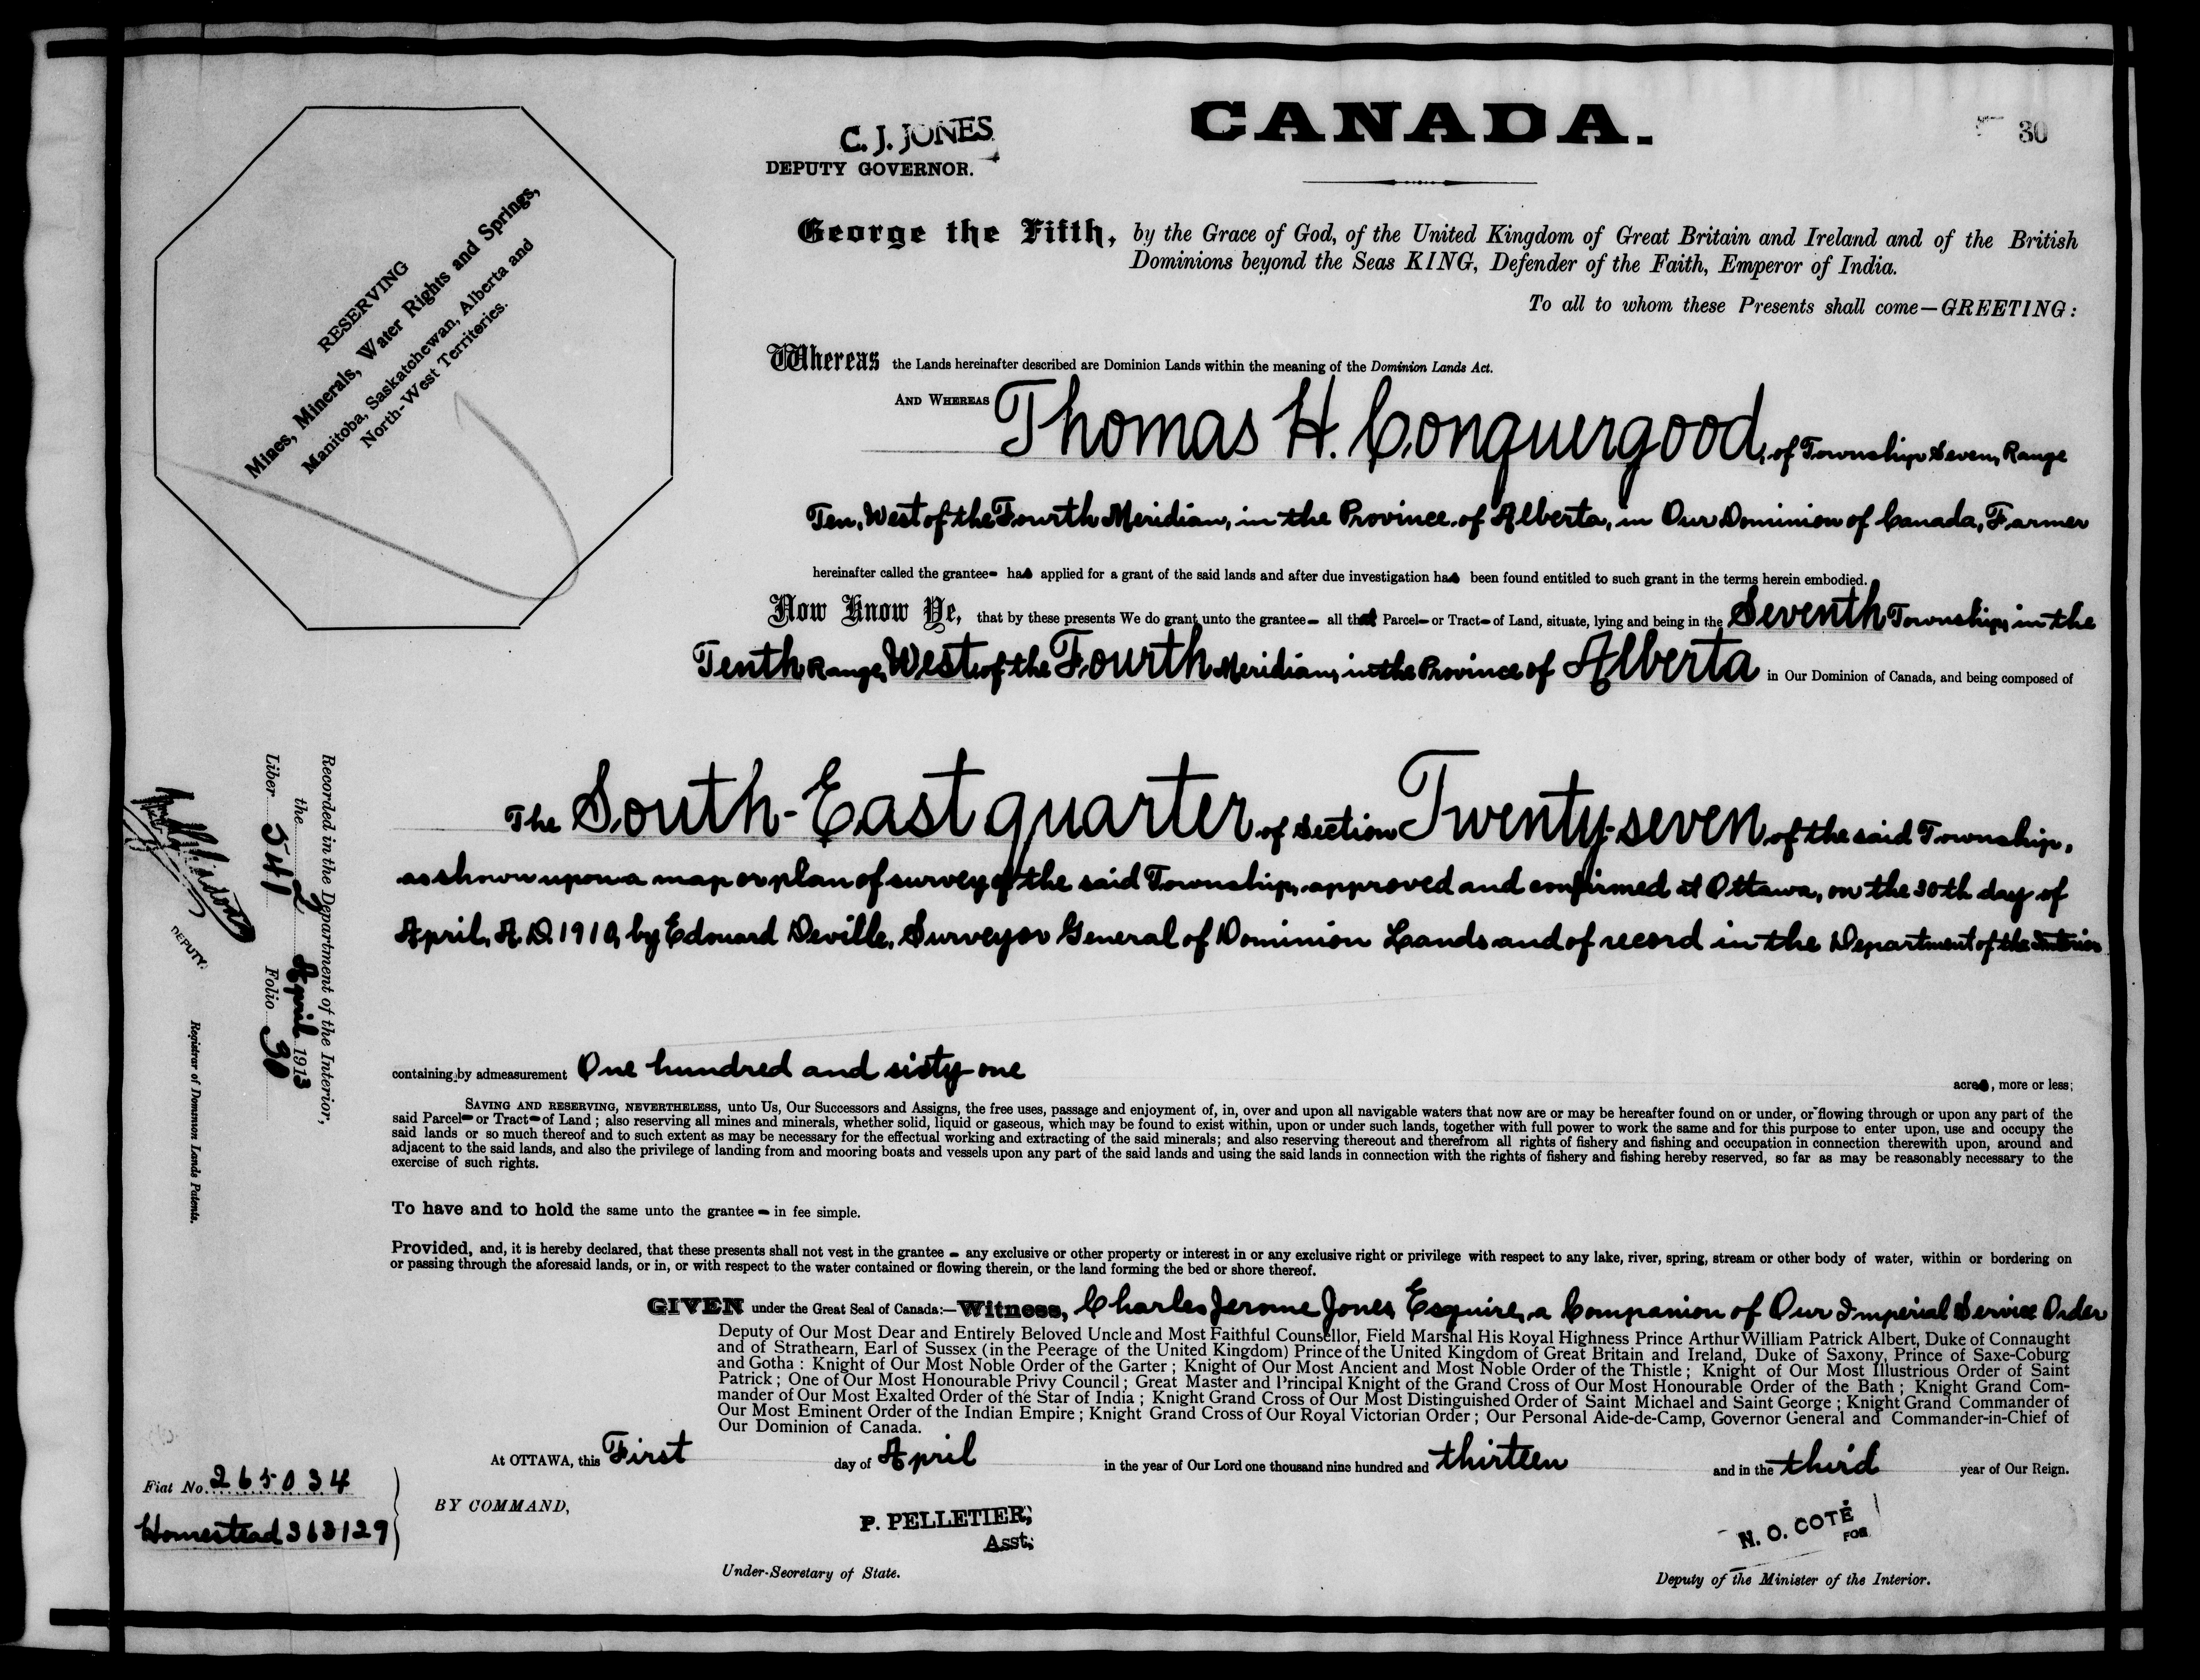 CANADA.
30
C. J. JONES
DEPUTY GOVERNOR.
RESERVING
Mines, Minerals, Water Rights and Springs,
Manitoba, Saskatchewan, Alberta and
North-West Territories.
George the Fifth, by the Grace of God, of the United Kingdom of Great Britain and Ireland and of the British
Dominions beyond the Seas KING, Defender of the Faith, Emperor of India.
To all to whom these Presents shall come—GREETING:
Whereas the Lands hereinafter described are Dominion Lands within the meaning of the Dominion Lands Act.
AND WHEREAS Thomas H. Conquergood, of Township Seven, Range
Ten, West of the Fourth Meridian, in the Province of Alberta, in Our Dominion of Canada, Farmer
hereinafter called the grantee- has applied for a grant of the said lands and after due investigation has been found entitled to such grant in the terms herein embodied.
Now Know Ye, that by these presents We do grant unto the grantee- all that Parcel- or Tract- of Land, situate, lying and being in the Seventh Township, in the
Tenth Range, West of the Fourth Meridian, in the Province of Alberta in Our Dominion of Canada, and being composed of
The South-East quarter of Section Twenty-seven of the said Township,
as shown upon a map or plan of survey of the said Township, approved and confirmed at Ottawa, on the 30th day of
April, A.D. 1910, by Edouard Deville, Surveyor General of Dominion Lands and of record in the Department of the Interior
containing by admeasurement One hundred and sixty-one acres, more or less;
SAVING AND RESERVING, NEVERTHELESS, unto Us, Our Successors and Assigns, the free uses, passage and enjoyment of, in, over and upon all navigable waters that now are or may be hereafter found on or under, or flowing through or upon any part of the
said Parcel- or Tract- of Land; also reserving all mines and minerals, whether solid, liquid or gaseous, which may be found to exist within, upon or under such lands, together with full power to work the same and for this purpose to enter upon, use and occupy the
said lands or so much thereof and to such extent as may be necessary for the effectual working and extracting of the said minerals; and also reserving thereout and therefrom all rights of fishery and fishing and occupation in connection therewith upon, around and
adjacent to the said lands, and also the privilege of landing from and mooring boats and vessels upon any part of the said lands and using the said lands in connection with the rights of fishery and fishing hereby reserved, so far as may be reasonably necessary to the
exercise of such rights.
To have and to hold the same unto the grantee - in fee simple.
Provided, and, it is hereby declared, that these presents shall not vest in the grantee - any exclusive or other property or interest in or any exclusive right or privilege with respect to any lake, river, spring, stream or other body of water, within or bordering on
or passing through the aforesaid lands, or in, or with respect to the water contained or flowing therein, or the land forming the bed or shore thereof.
GIVEN under the Great Seal of Canada:—Witness, Charles Jerome Jones, Esquire, a Companion of Our Imperial Service Order
Deputy of Our Most Dear and Entirely Beloved Uncle and Most Faithful Counsellor, Field Marshal His Royal Highness Prince Arthur William Patrick Albert, Duke of Connaught
and of Strathearn, Earl of Sussex (in the Peerage of the United Kingdom) Prince of the United Kingdom of Great Britain and Ireland, Duke of Saxony, Prince of Saxe-Coburg
and Gotha : Knight of Our Most Noble Order of the Garter ; Knight of Our Most Ancient and Most Noble Order of the Thistle ; Knight of Our Most Illustrious Order of Saint
Patrick ; One of Our Most Honourable Privy Council ; Great Master and Principal Knight of the Grand Cross of Our Most Honourable Order of the Bath ; Knight Grand Com-
mander of Our Most Exalted Order of the Star of India ; Knight Grand Cross of Our Most Distinguished Order of Saint Michael and Saint George ; Knight Grand Commander of
Our Most Eminent Order of the Indian Empire ; Knight Grand Cross of Our Royal Victorian Order ; Our Personal Aide-de-Camp, Governor General and Commander-in-Chief of
Our Dominion of Canada.
At OTTAWA, this First day of April in the year of Our Lord one thousand nine hundred and thirteen and in the third year of Our Reign.
BY COMMAND,
P. PELLETIER;
Asst;
Under-Secretary of State.
N. O. COTÉ
FOR
Deputy of the Minister of the Interior.
Fiat No. 265034
Homestead 363129
Recorded in the Department of the Interior,
the 2 April 1913
Liber 541 Folio 30
DEPUTY.
Registrar of Dominion Lands Patents.